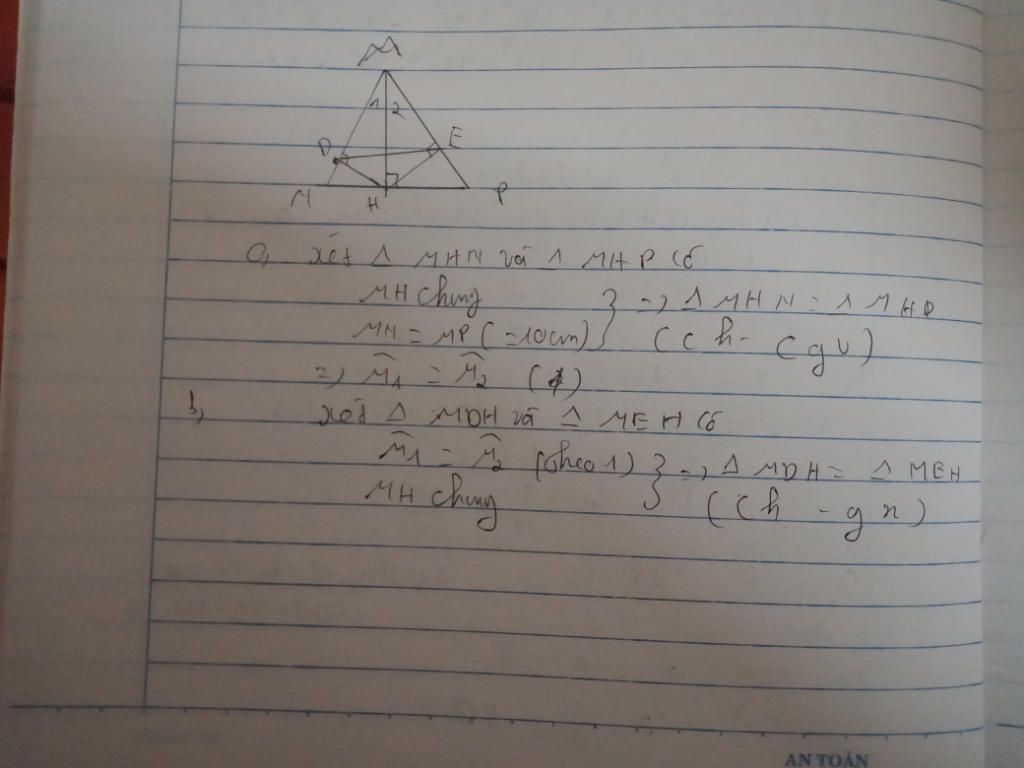 M
1 2
D E
N H P
a, xét Δ MHN và Δ MHP có
MH chung
MN = MP (=10cm) } => Δ MHN = Δ MHP
(ch - cgv)
=> M̂1 = M̂2 (1)
b, xét Δ MDH và Δ MEH có
M̂1 = M̂2 (theo 1) } => Δ MDH = Δ MEH
MH chung (ch - gn)
AN TOÀN